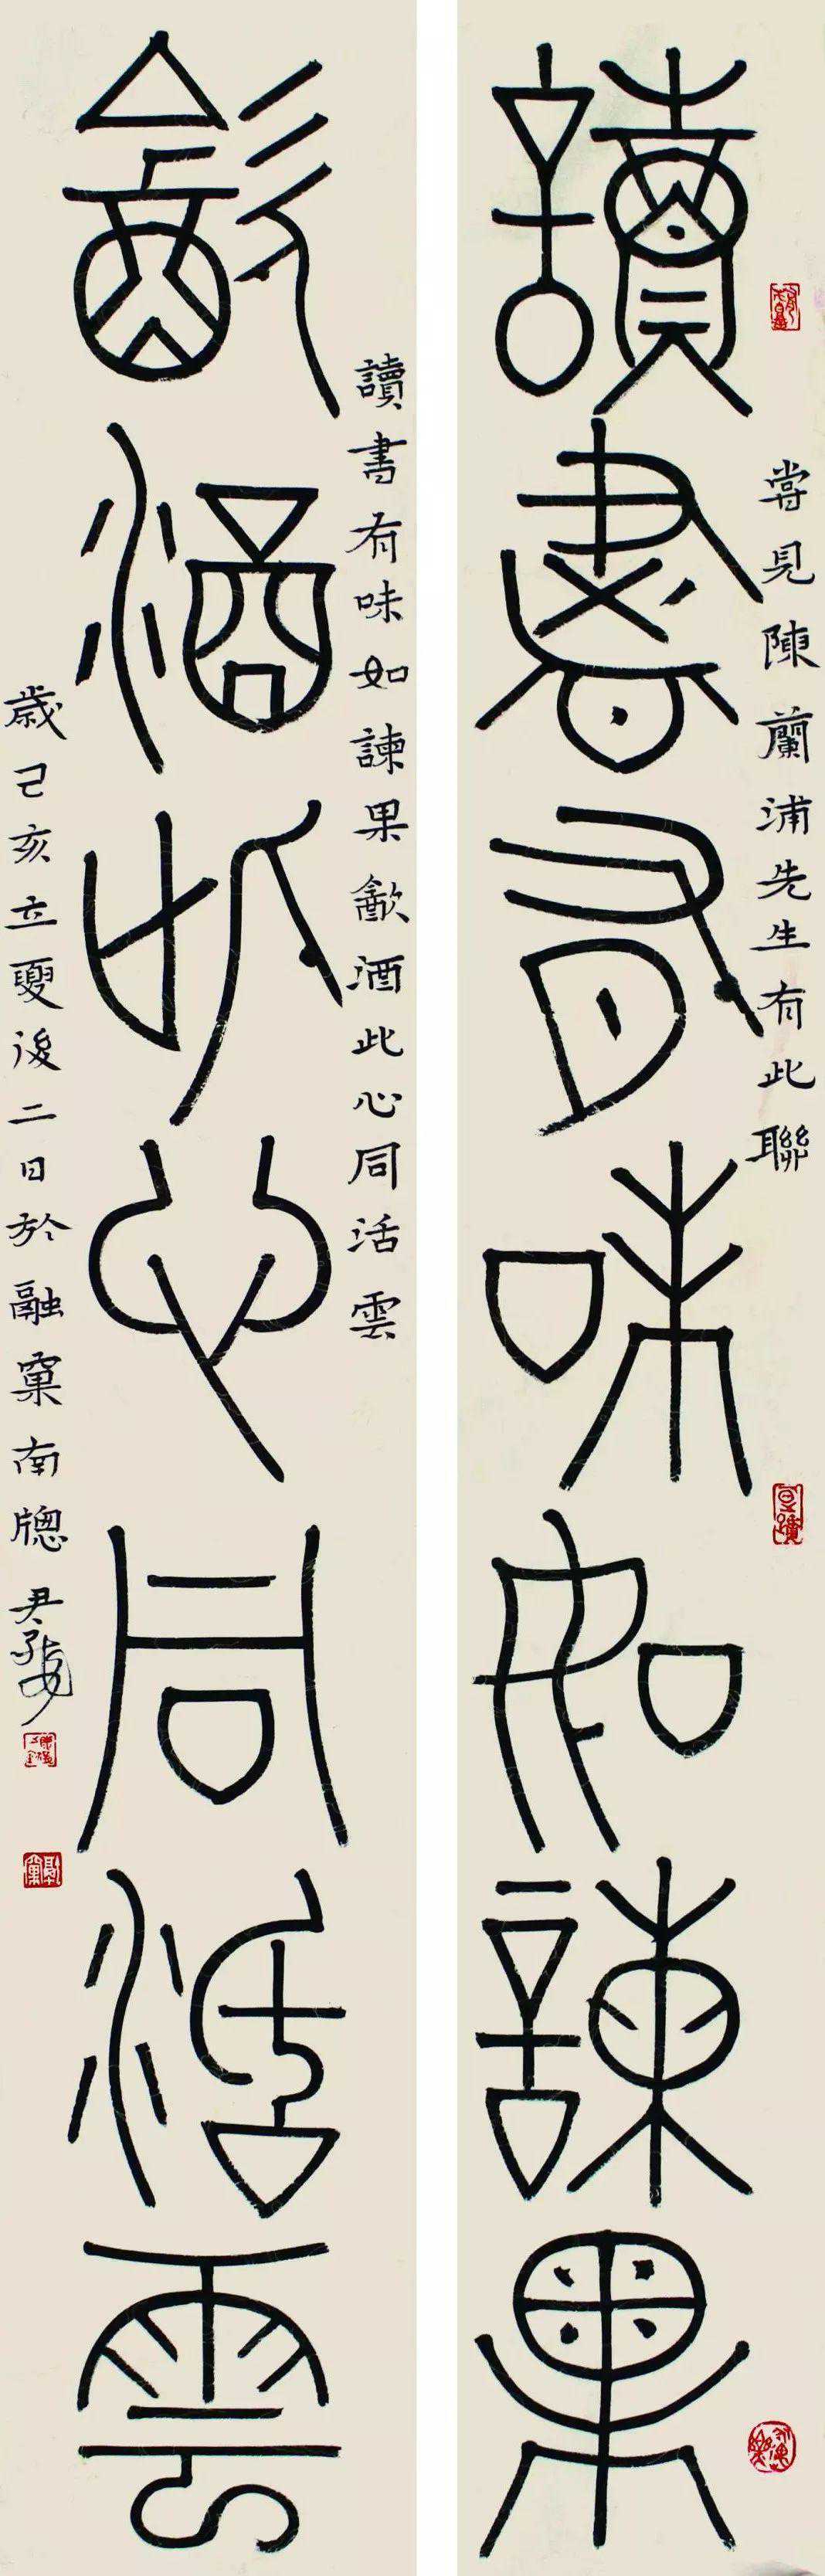 嘗見陳蘭浦先生有此聯
讀書有味如諫果
讀書有味如諫果㱃酒此心同活雲
㱃酒此心同活雲
歲己亥立夏後二日於融窠南牕 尹